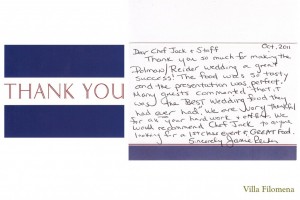 THANK YOU
Oct, 2011
Dear Chef Jack + Staff
Thank you so much for making the
Polmow/Reider wedding a great
success! The food was so tasty
and the presentation was perfect!
Many guests commented that it
was "the BEST wedding food they
had ever had". We are very thankful
for all your hard work + effort. We
would recommend Chef Jack to anyone
looking for a 1st class event + GREAT Food.
Sincerely,
Villa Filomena